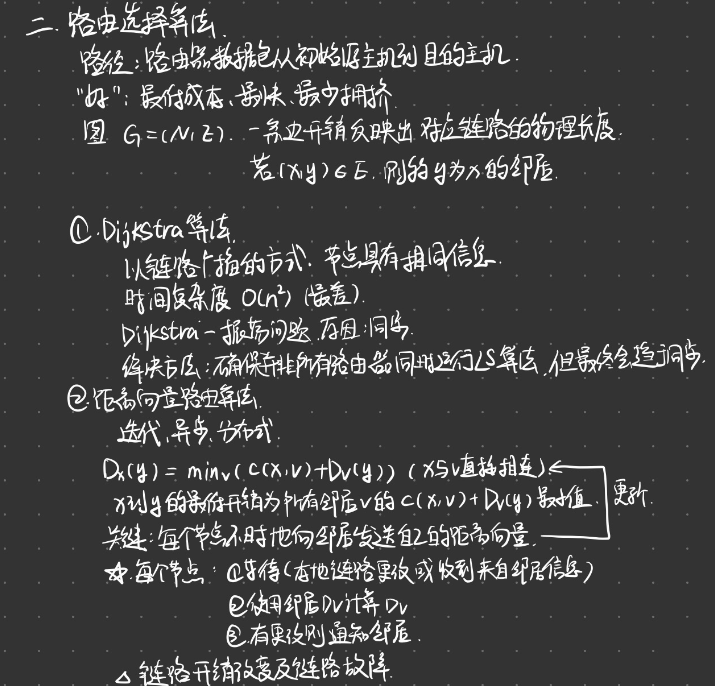 二. 路由选择算法.
路径：路由器数据包从初始源主机到目的主机.
"好"：最低成本、最快、最少拥挤.
图 G=(N,E). 一条边开销反映出对应链路的物理长度.
若(x,y)∈E. 则 y为x的邻居.
①.Dijkstra算法.
以链路广播的方式. 节点具有相同信息.
时间复杂度 O(n²) (最差).
Dijkstra-振荡问题. 原因:同步.
解决方法：确保并非所有路由器同时运行LS算法, 但最终会趋于同步.
②.距离向量路由算法.
迭代、异步、分布式.
Dx(y) = minv(c(x,v)+Dv(y)) (x与v直接相连)
x到y的最低开销为所有邻居v的c(x,v)+Dv(y)最小值. 更新.
关键：每个节点不时地向邻居发送自己的距离向量.
☆.每个节点：①等待(本地链路更改或收到来自邻居信息)
②使用邻居Dv计算Dv
③.有更改则通知邻居.
△ 链路开销改变及链路故障.